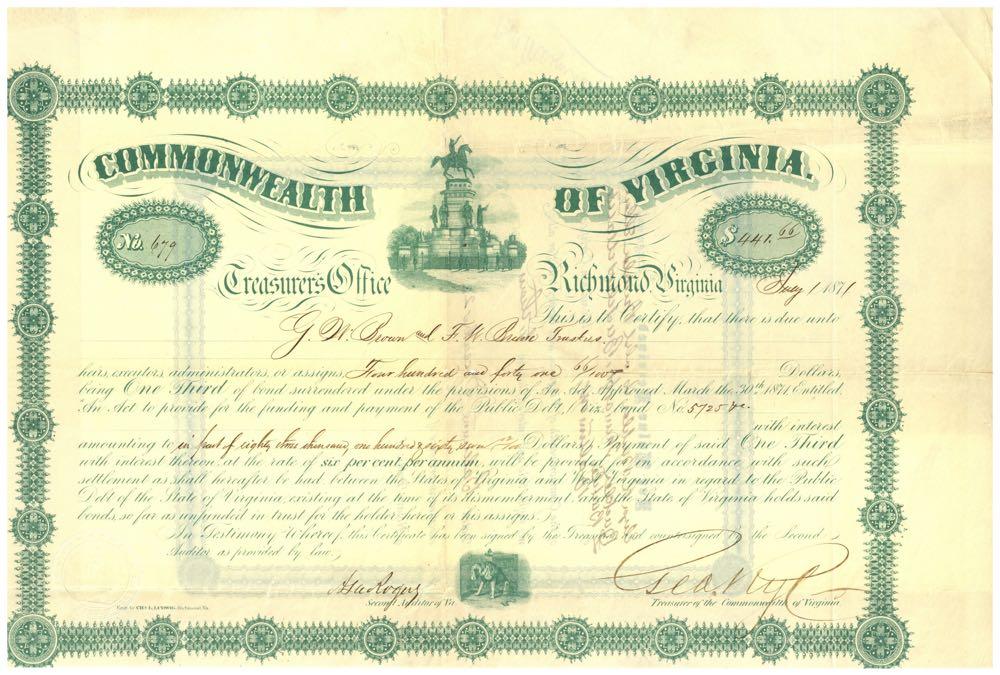 COMMONWEALTH OF VIRGINIA.
No. 679
$441.66
Treasurer's Office Richmond, Virginia July 1 1871
This is to Certify, that there is due unto
G. W. Brown and F. W. Trustees.
heirs, executors, administrators, or assigns, Four hundred and forty one 66/100 Dollars,
being One Third of bond surrendered under the provisions of An Act, Approved March the 30th 1871, Entitled,
An Act to provide for the funding and payment of the Public Debt, (Viz:) bond No. 5725 &c.
with interest
amounting to in part of eighty three thousand, one hundred & Dollars, Payment of said One Third
with interest thereon, at the rate of six per cent. per annum, will be provided for in accordance with such
settlement as shall hereafter be had between the States of Virginia and West Virginia in regard to the Public
Debt of the State of Virginia, existing at the time of its dismemberment, and the State of Virginia holds said
bonds, so far as unfunded in trust for the holder hereof or his assigns.
In Testimony Whereof, this Certificate has been signed by the Treasurer and countersigned by the Second
Auditor as provided by law.
Asa Rogers
Second Auditor of Va
Geo. Rye
Treasurer of the Commonwealth of Virginia
Engd. by CHS. L. LUDWIG, Richmond, Va.